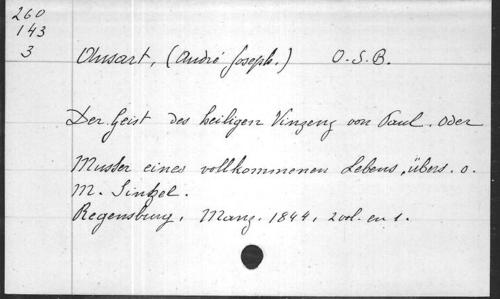 260
143
3
Ansart, (André Joseph.) O.S.B.
Der Geist des heiligen Vinzenz von Paul. oder
Muster eines vollkommenen Lebens, übers. v.
M. Sintzel.
Regensburg, Manz. 1844, 2 vol. en 1.